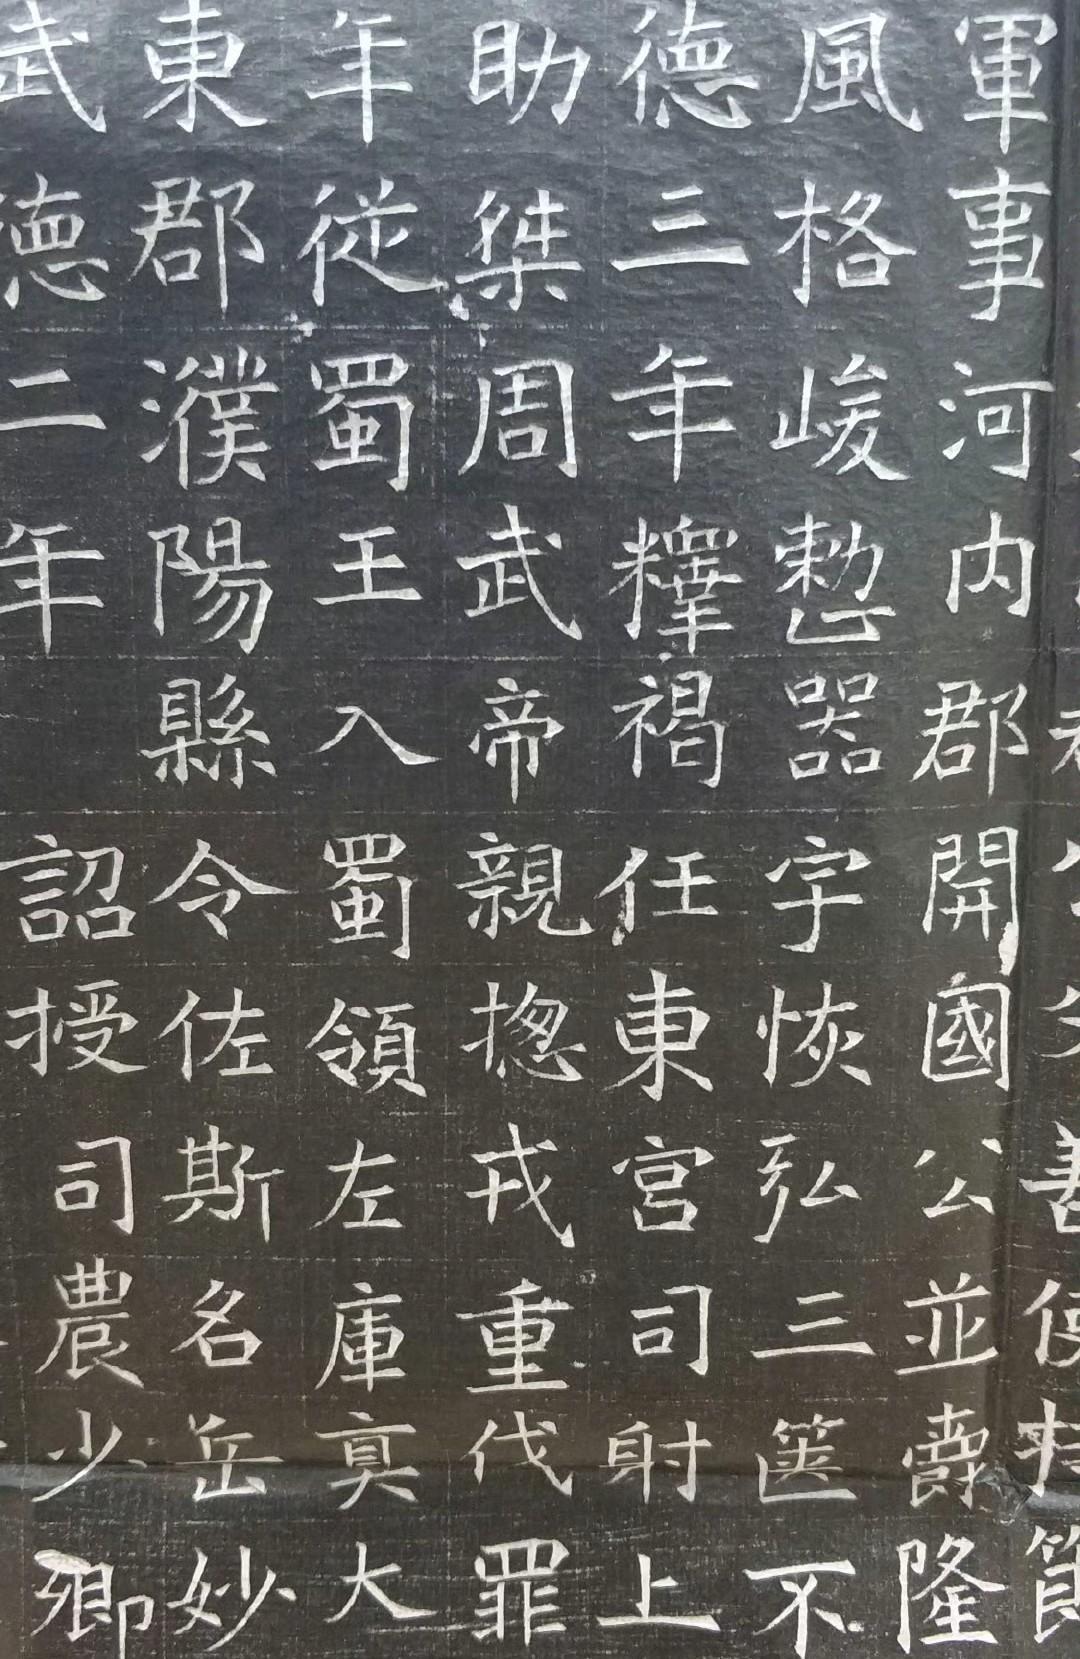 軍事河内郡開國公並爵隆
風格峻慗器宇恢弘三篋不
德三年釋褐任東宮司射上
助桀周武帝親揔戎重伐罪
年從蜀王入蜀領左庫真大
東郡濮陽縣令佐斯名岳妙
武德二年詔授司農少卿